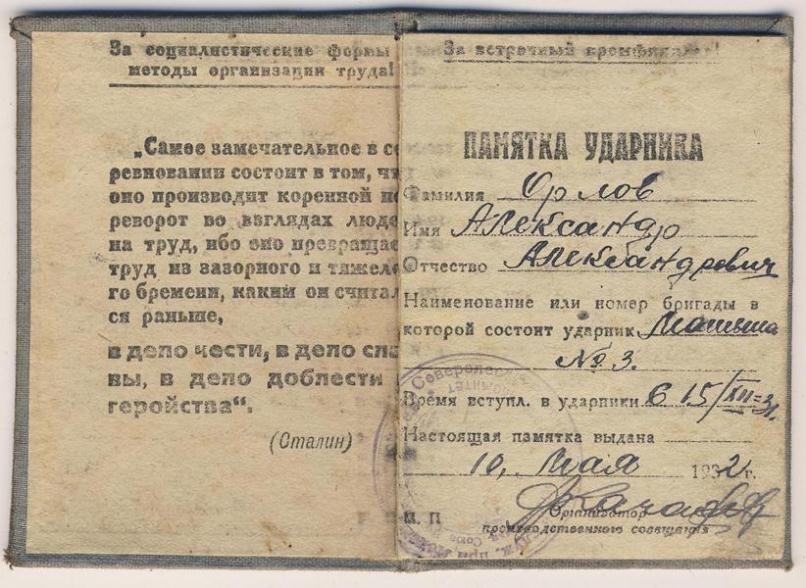 За социалистические формы
методы организации труда!
„Самое замечательное в со
ревновании состоит в том, что
оно производит коренной пе
реворот во взглядах люде
на труд, ибо оно превращае
труд из зазорного и тяжело
го бремени, каким он считал
ся раньше,
в дело чести, в дело сла
вы, в дело доблести
геройства“.
(Сталин)
За встречный промфинплан!
ПАМЯТКА УДАРНИКА
Фамилия Орлов
Имя Александр
Отчество Александрович
Наименование или номер бригады в
которой состоит ударник Машина
№ 3.
Время вступл. в ударники с 15/XII=31.
Настоящая памятка выдана
10, Мая 1932 г.
Организатор
производственного совещания
М. П